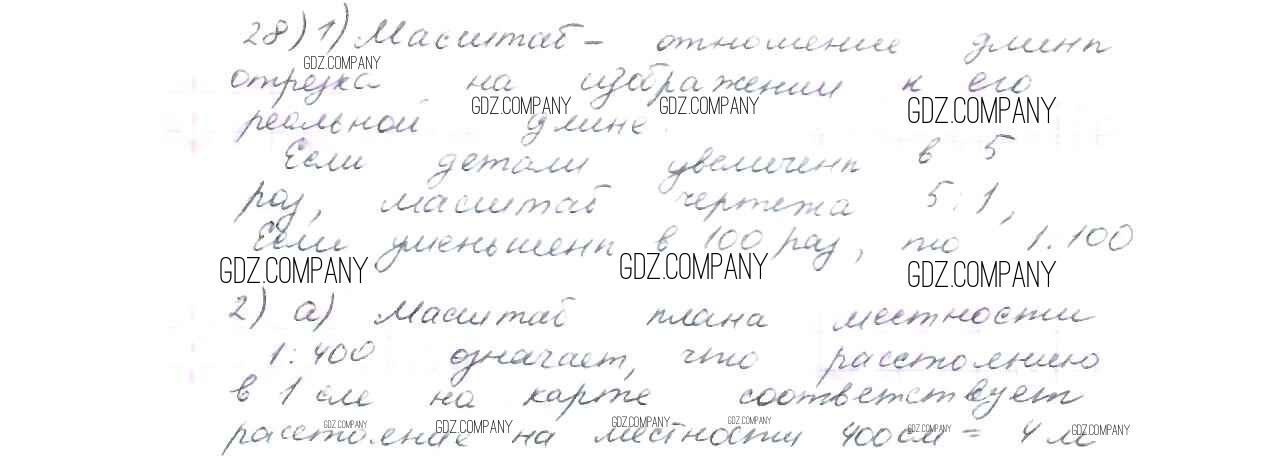 28) 1) Масштаб – отношение длины
GDZ.COMPANY
отрезка на изображении к его
GDZ.COMPANY GDZ.COMPANY GDZ.COMPANY
реальной длине.
Если детали увеличены в 5
раз, масштаб чертежа 5:1,
Если уменьшены в 100 раз, то 1:100
GDZ.COMPANY GDZ.COMPANY GDZ.COMPANY
2) а) Масштаб плана местности
1:400 означает, что расстоянию
в 1 см на карте соответствует
GDZ.COMPANY GDZ.COMPANY GDZ.COMPANY GDZ.COMPANY GDZ.COMPANY GDZ.COMPANY
расстояние на местности 400 см = 4 м